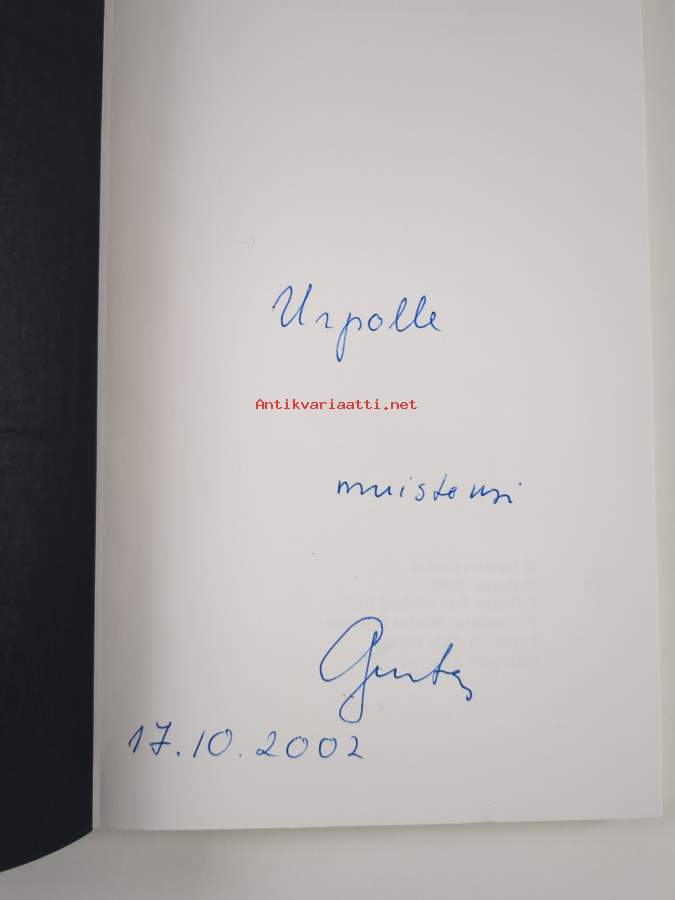 Urpolle
Antikvariaatti.net
muistoksi
17.10.2002